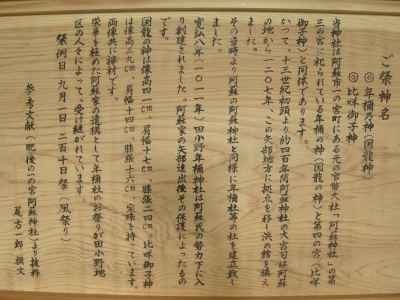 ご祭神名
◎年桶乃神（国龍神）
◎比咩御子神
当神社は阿蘇市一の宮町にある元の官幣大社「阿蘇神社」の第
三の宮に祀られている年桶の神（国龍の神）と第四の宮（比咩
御子神）と同体であります。
かつて、十三世紀初頭より約四百年間阿蘇神社の大宮司は阿蘇
の地から一二〇七年、この矢部地方に拠点を移し浜の館を構え
その当時より阿蘇の阿蘇神社と同様に年桶社等の社を建立致し
ました。
寛弘八年（一〇一一年）田小野年桶神社は阿蘇氏の勢力下に入
り創建されました。阿蘇家の矢部進出後その保護によったもの
です。
国龍の神は像高四一㎝、肩幅十七㎝、膝張二四㎝。比咩御子神
は像高三九㎝、肩幅十四㎝、膝張十六㎝、宝珠を持っています。
両像共に樟材です。
栄華を極めた阿蘇家の遺構として年桶社のお祭りが田小野地
区の人々によって、受け継がれています。
祭例日 九月一日二百十日祭（風祭り）
参考文献（肥後の一の宮阿蘇神社）より抜粋
尾方一郎 撰文